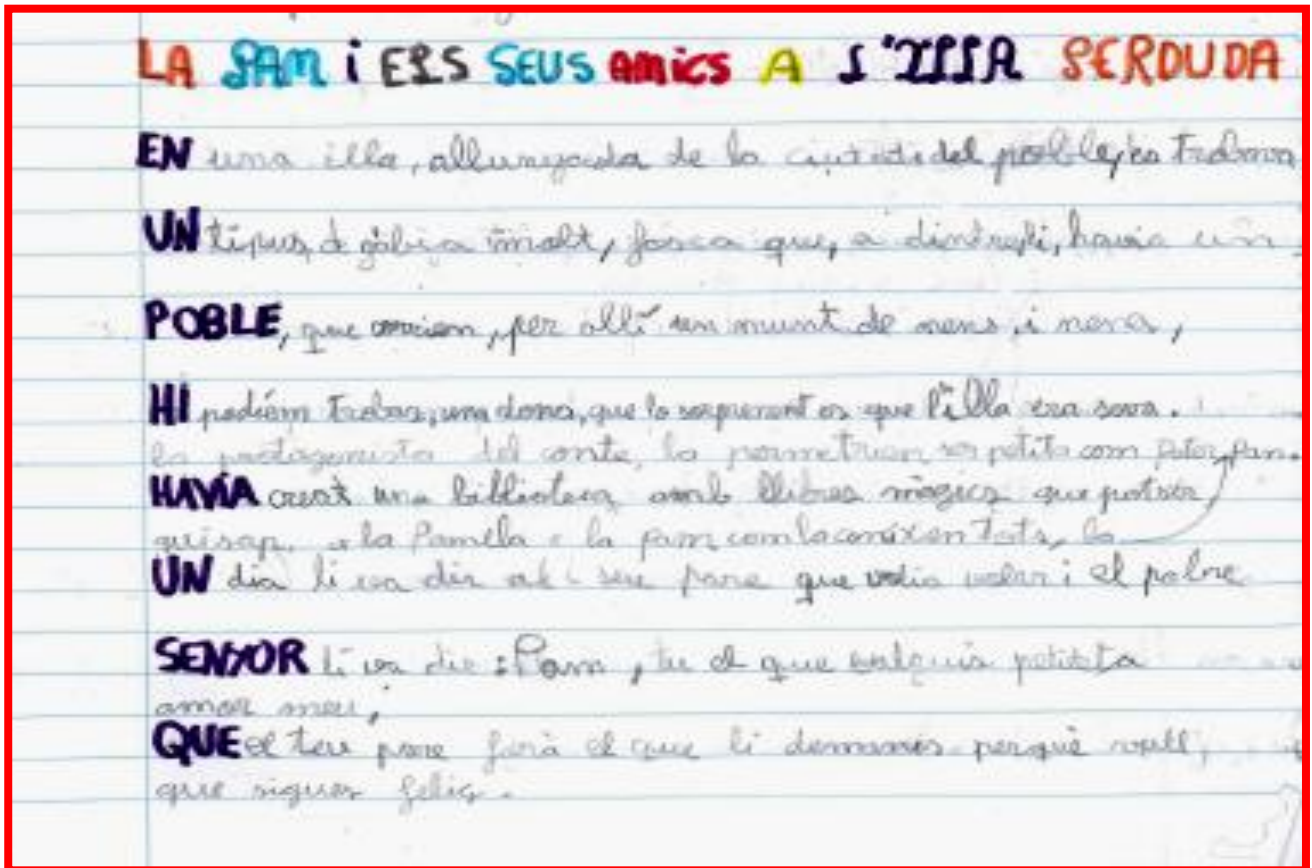 LA PAM i ELS SEUS AMICS A L'ILLA PERDUDA
EN una illa, allunyada de la ciutat i del poble, es trobava
UN tipus de gàbia molt, fosca que, a dintre, hi, havia un
POBLE, que corrien, per allí un munt de nens, i nena,
HI podíem trobar, una dona, que lo sorprenent es que l'illa era seva.
la protagonista del conte, la permetrien ser petita com Peter Pan.
HAVÍA creat una biblioteca amb llibres màgics que potser
quisap, a la Pamela o la pam com la coneixen tots, la
UN dia li va dir al seu pare que volia volar i el pobre
SENYOR li va dir: Pam, tu el que vulguis petiteta
amor meu,
QUE el teu pare farà el que li demanis perquè vull,
que sigues feliç.